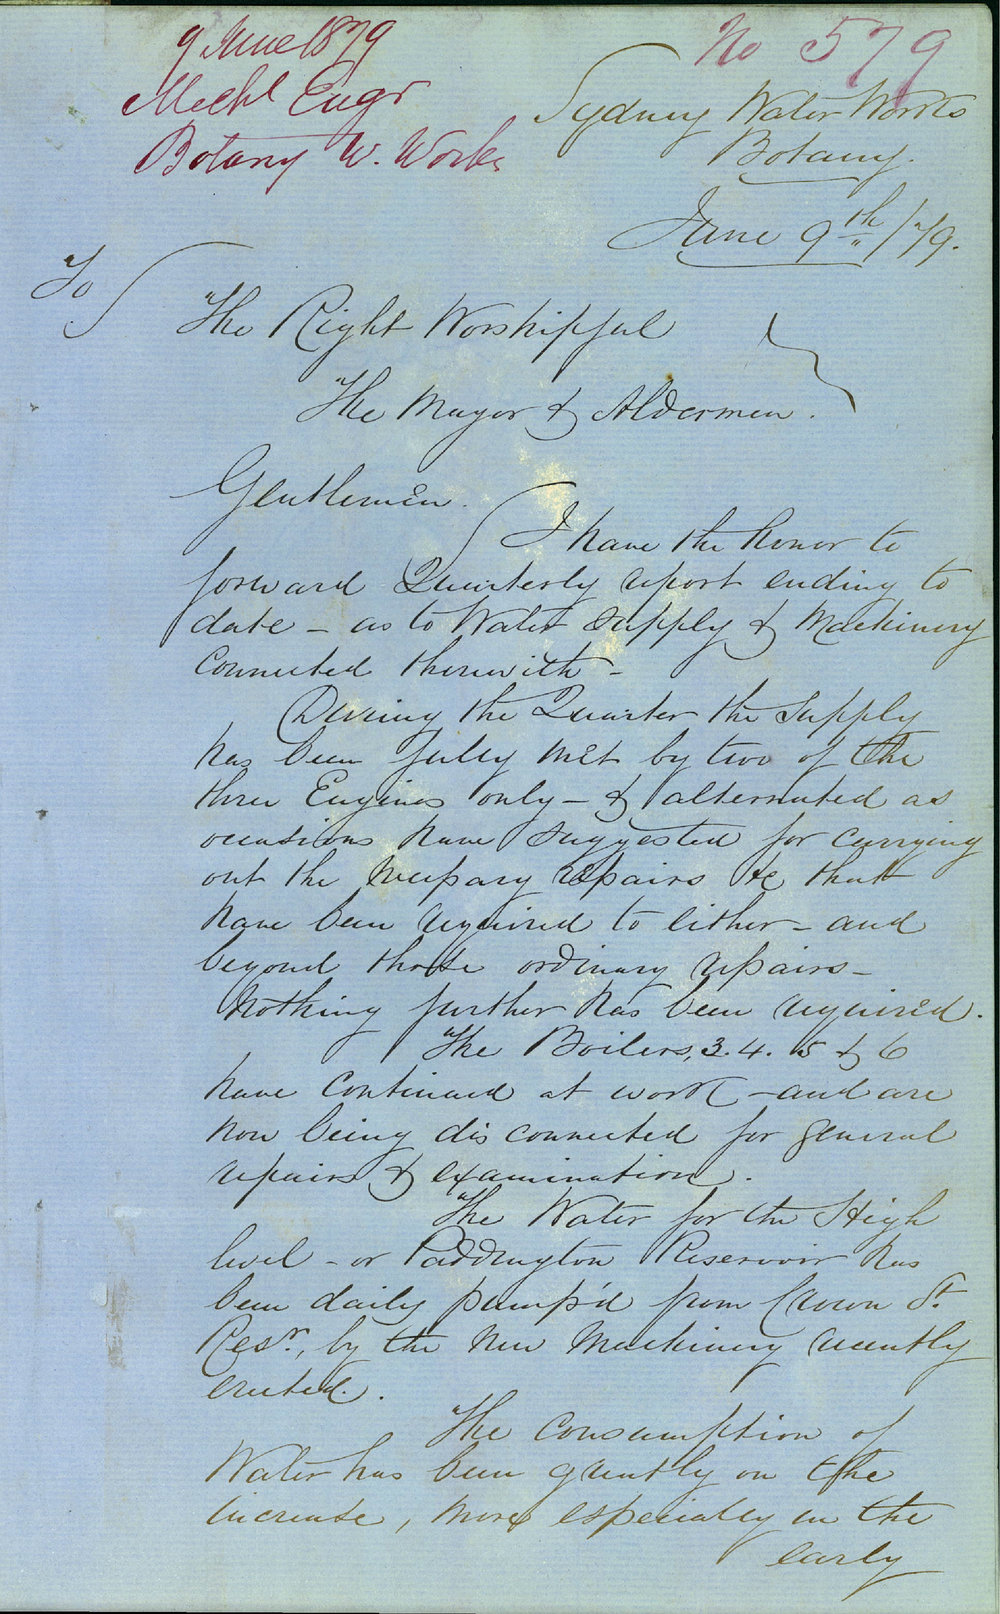 9 June 1879
Mechl Engr
Botany W. Works
No 579
Sydney Water Works
Botany.
June 9th /79.
To
The Right Worshipful
The Mayor & Aldermen.
Gentlemen.
I have the honor to
forward Quarterly report ending to
date – as to Water supply & Machinery
Connected therewith –
During the Quarter the Supply
has been fully met by two of the
three Engines only – & alternated as
occasions have suggested for carrying
out the necessary repairs &c that
have been required to either – and
beyond those ordinary repairs –
Nothing further has been required.
The Boilers, 3. 4. 5 & 6
have Continued at work – and are
now being disconnected for general
repairs & examination.
The Water for the High
level – or Paddington Reservoir has
been daily pump'd from Crown St.
Resr., by the New Machinery recently
erected.
The Consumption of
Water has been greatly on the
increase, more especially in the
early